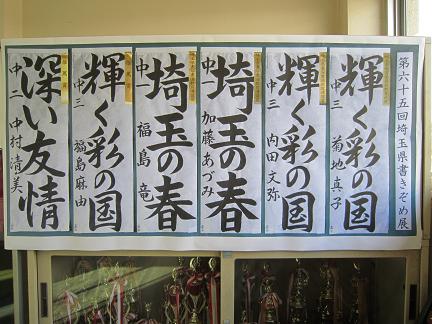 第六十五回埼玉県書きぞめ展
輝く彩の国
中三 菊地真子
輝く彩の国
中三 内田文弥
埼玉の春
中一 加藤あづみ
埼玉の春
中一 福島竜
輝く彩の国
中三 福島麻由
深い友情
中二 中村清美